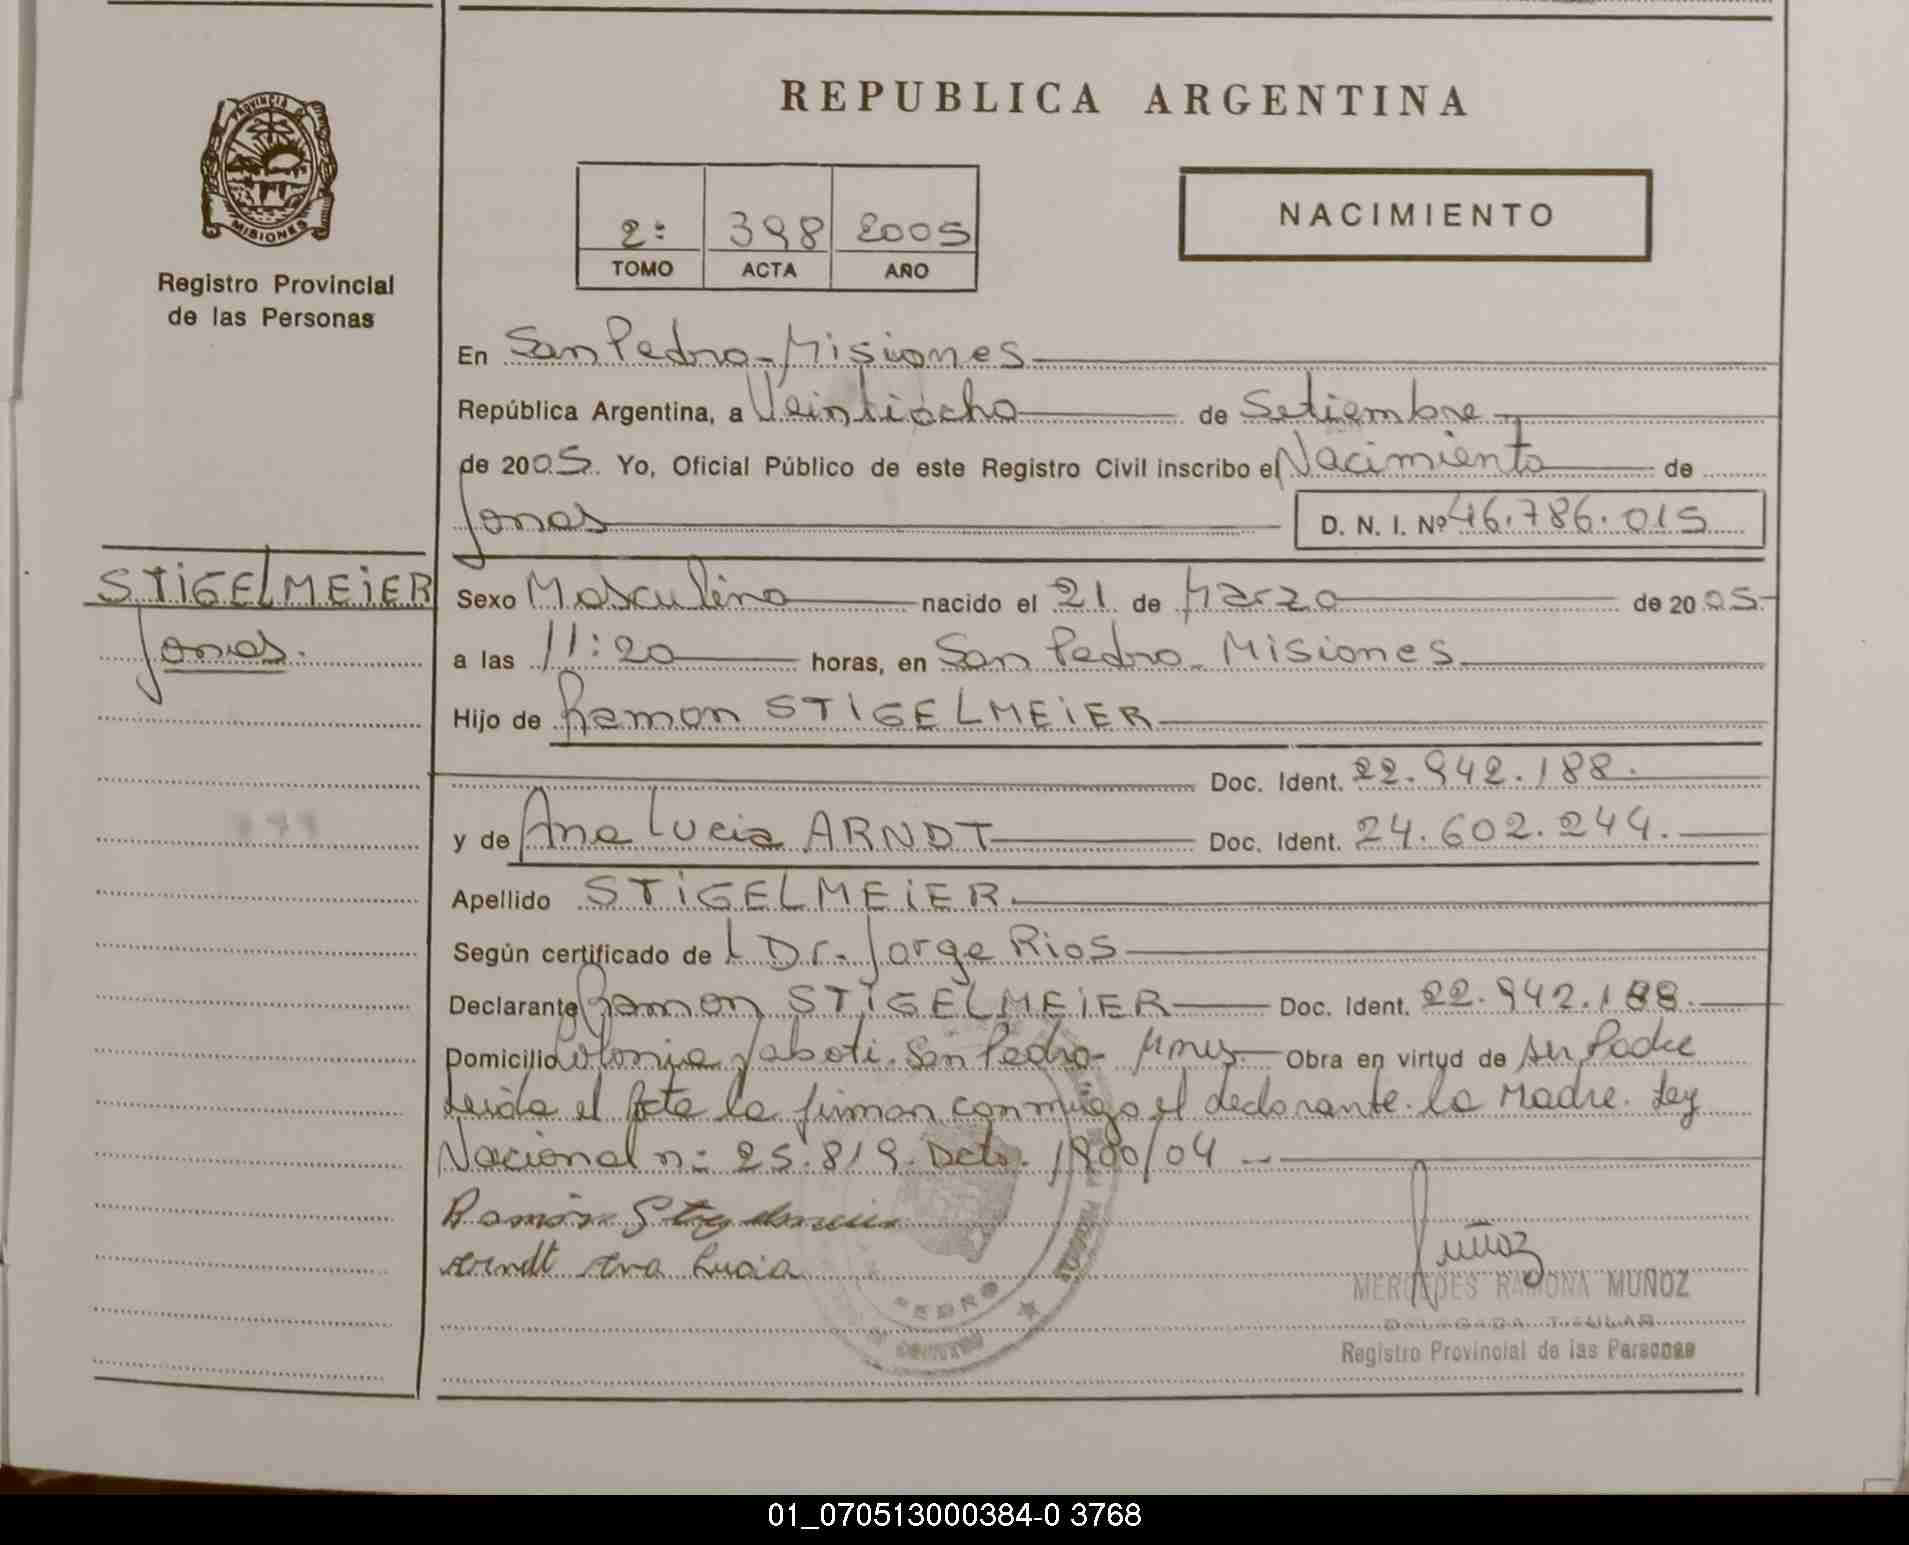 REPUBLICA ARGENTINA
PROVINCIA DE
MISIONES
Registro Provincial
de las Personas
2: 398 2005
TOMO ACTA AÑO
NACIMIENTO
En San Pedro - Misiones
República Argentina, a Veintiocho de Setiembre
de 2005. Yo, Oficial Público de este Registro Civil inscribo el Nacimiento de
Jonas D. N. I. Nº 46.786.015
STIGELMEIER
Jonas.
Sexo Masculino nacido el 21 de Marzo de 2005.
a las 11:20 horas, en San Pedro - Misiones
Hijo de Ramon STIGELMEIER
Doc. Ident. 22.942.188.
y de Ana Lucia ARNDT Doc. Ident. 24.602.244.
Apellido STIGELMEIER
Según certificado de l Dr. Jorge Rios
Declarante Ramon STIGELMEIER Doc. Ident. 22.942.188.
Domicilio Colonia Yaboti. San Pedro - Mnes. Obra en virtud de su Padre
Leida el Acta la firman conmigo el declarante. la Madre. Ley
Nacional n: 25.819. Dcto. 1900/04
Ramón Stigelmeier
Arndt Ana Lucia
PEDRO
Muñoz
MERCEDES RAMONA MUÑOZ
DELEGADA TITULAR
Registro Provincial de las Personas
01_070513000384-0 3768